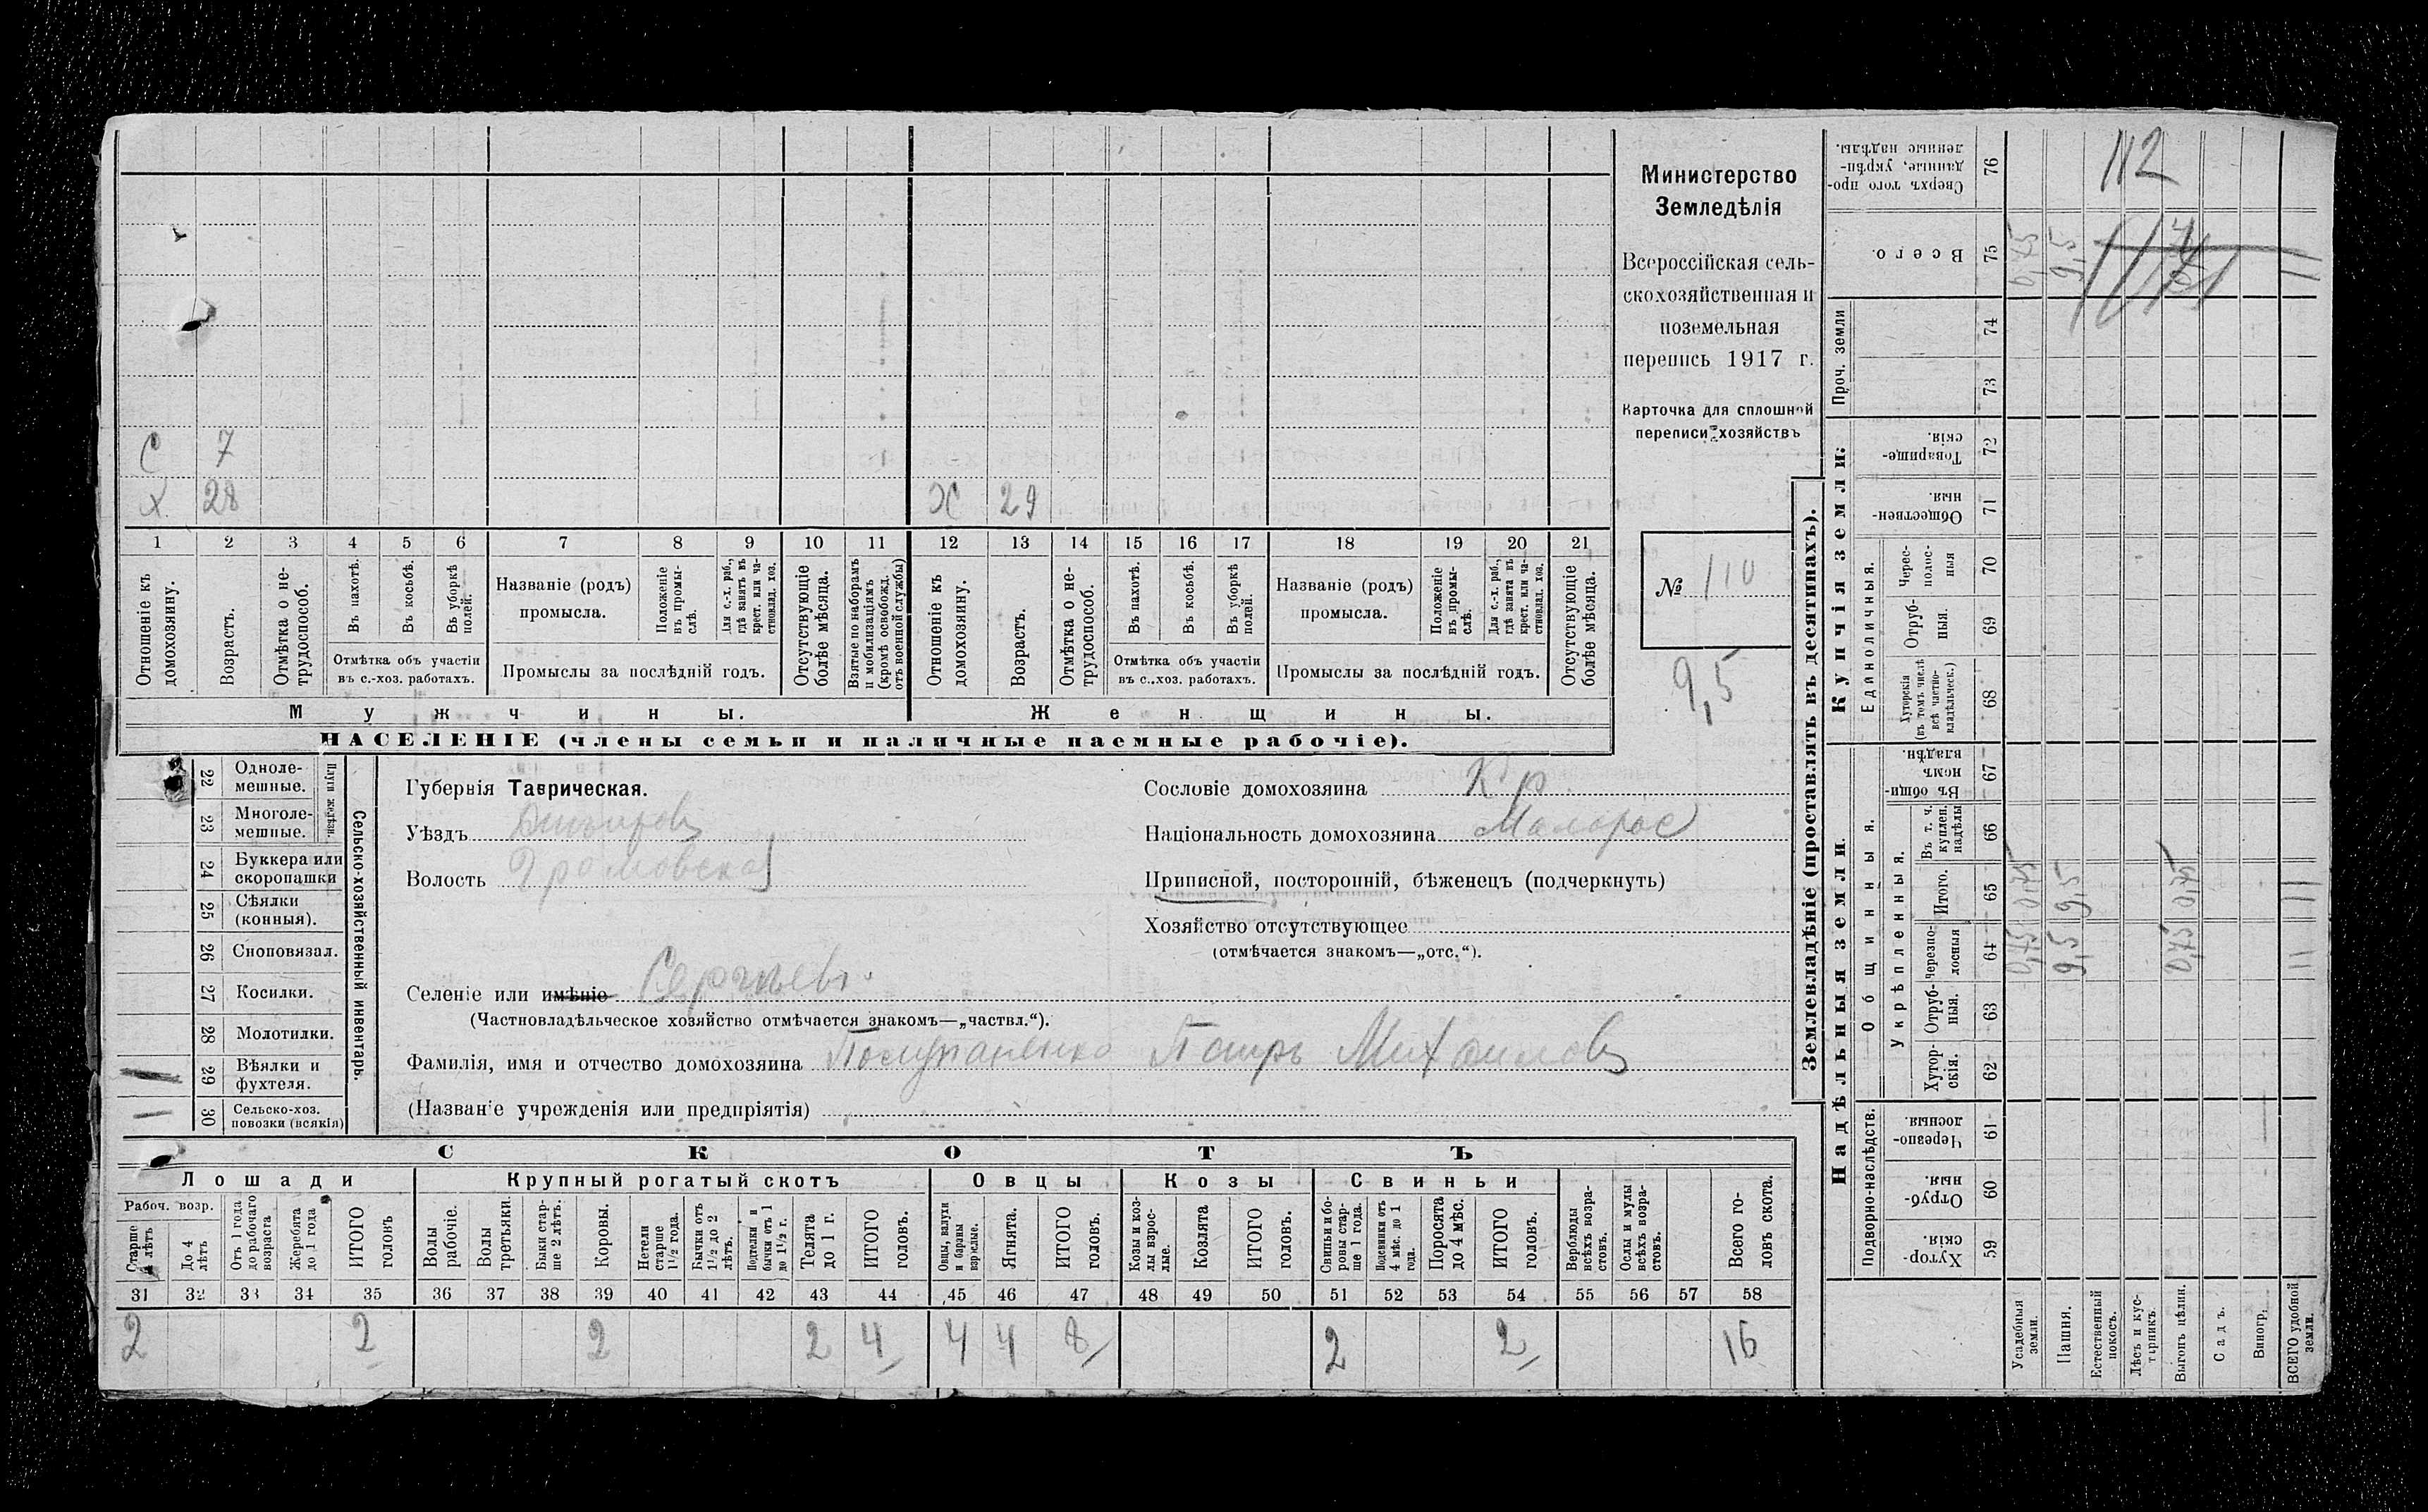 С 7
Х 28 Ж 29
1 2 3 4 5 6 7 8 9 10 11 12 13 14 15 16 17 18 19 20 21
Отношеніе къ домохозяину.
Возрастъ.
Отмѣтка о не-трудоспособ.
Въ пахотѣ.
Въ косьбѣ.
Въ уборкѣ полей.
Отмѣтка объ участіи
въ с.-хоз. работахъ.
Названіе (родъ)
промысла.
Положеніе въ промы-слѣ.
Для с.-х. раб., гдѣ занятъ въ крест. или ча-стновлад. хоз.
Промыслы за послѣдній годъ.
Отсутствующіе болѣе мѣсяца.
Взятые по наборамъ и мобилизаціямъ (кромѣ освобожд. отъ военной службы)
Отношеніе къ домохозяину.
Возрастъ.
Отмѣтка о не-трудоспособ.
Въ пахотѣ.
Въ косьбѣ.
Въ уборкѣ полей.
Отмѣтка объ участіи
въ с.-хоз. работахъ.
Названіе (родъ)
промысла.
Положеніе въ промы-слѣ.
Для с.-х. раб., гдѣ занята въ крест. или ча-стновлад. хоз.
Промыслы за послѣдній годъ.
Отсутствующіе болѣе мѣсяца.
Мужчины. Женщины.
НАСЕЛЕНІЕ (члены семьи и наличные наемные рабочіе).
Министерство
Земледѣлія
Всероссійская сель-
скохозяйственная и
поземельная
перепись 1917 г.
Карточка для сплошной
переписи хозяйствъ
№ 110
9,5
22 Одноле-мешные.
23 Многоле-мешные.
Плуги желѣзн.
24 Буккера или скоропашки
25 Сѣялки (конныя).
26 Сноповязал.
27 Косилки.
28 Молотилки.
29 Вѣялки и фухтеля.
1 30 Сельско-хоз. повозки (всякія)
Сельско-хозяйственный инвентарь.
Губернія Таврическая.
Уѣздъ Днѣпров
Волость Громовская
Селеніе или имѣніе
(Частновладѣльческое хозяйство отмѣчается знакомъ—„частвл.“).
Фамилія, имя и отчество домохозяина Михаилов
(Названіе учрежденія или предпріятія)
Сословіе домохозяина Кр.
Національность домохозяина Малорос
Приписной, посторонній, бѣженецъ (подчеркнуть)
Хозяйство отсутствующее
(отмѣчается знакомъ—„отс.“).
СКОТЪ
Лошади Крупный рогатый скотъ Овцы Козы Свиньи
Рабоч. возр.
Старше 4 лѣтъ
До 4 лѣтъ
Отъ 1 года до рабочаго возраста
Жеребята до 1 года
ИТОГО головъ
Волы рабочіе.
Волы третьяки.
Быки стар-ше 2 лѣтъ.
Коровы.
Нетели старше 1½ года.
Бычки отъ 1½ до 2 лѣтъ.
Подтелки и бычки отъ 1 до 1½ г.
Телята до 1 г.
ИТОГО головъ.
Овцы, валухи и бараны взрослые.
Ягнята.
ИТОГО головъ.
Козы и коз-лы взрос-лые.
Козлята
ИТОГО головъ.
Свиньи и бо-ровы стар-ше 1 года.
Подсвинки отъ 4 мѣс. до 1 года.
Поросята до 4 мѣс.
ИТОГО головъ.
Верблюды всѣхъ возра-стовъ.
Ослы и мулы всѣхъ возра-стовъ.
Всего го-ловъ скота.
31 32 33 34 35 36 37 38 39 40 41 42 43 44 45 46 47 48 49 50 51 52 53 54 55 56 57 58
2 2 2 2 4 4 4 8 2 2 16
Землевладѣніе (проставлять въ десятинахъ).
Надѣльныя земли. Купчія земли: Проч. земли
Подворно-наслѣдств. Общинныя. Единоличныя.
Укрѣпленныя.
Хутор-скія. 59
Отруб-ныя. 60
Черезпо-лосныя 61
Хутор-скія. 62
Отруб-ныя. 63
Черезпо-лосныя 64
Итого. 65
Въ т. ч. куплен. надѣлы 66
Въ общи-номъ владѣн. 67
Хуторскія (въ томъ числѣ всѣ частно-владѣльческ.) 68
Отруб-ныя. 69
Черес-полос-ныя 70
Обществен-ныя. 71
Товарище-скія. 72
73
74
Всего. 75
Сверхъ того про-данные, укрѣп-ленные надѣлы. 76
Усадебныя земли. 0,75 0,75 0,75
Пашня. 9,5 9,5 9,5
Естественный покосъ.
Лѣсъ и кус-тарникъ.
Выгонъ цѣлин. 0,75 0,75
Садъ.
Виногр.
ВСЕГО удобной земли. 11 11 11
112